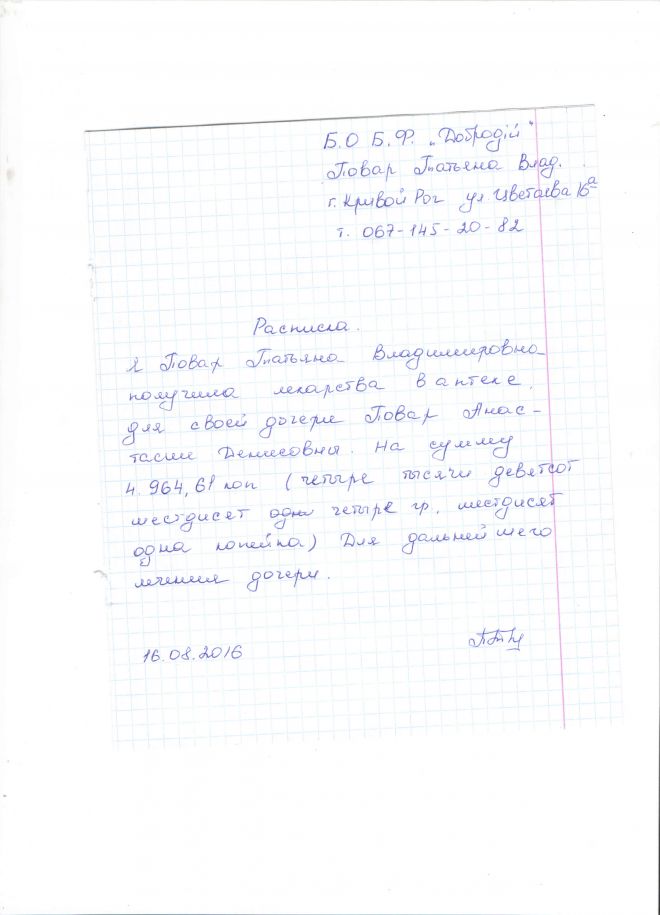 Б.О Б.Ф. „Добродій"
Повар Татьяна Влад.
г. Кривой Рог ул Цветаева 16а
т. 067-145-20-82
Расписка.
Я Повар Татьяна Владимировна
получила лекарства в аптеке,
для своей дочери Повар Анас-
тасии Денисовны. На сумму
4.964,61 коп (четыре тысячи девятсот
шестдисет одна четыре гр, шестдисят
одна копейка) Для дальнейшего
лечения дочери.
16.08.2016